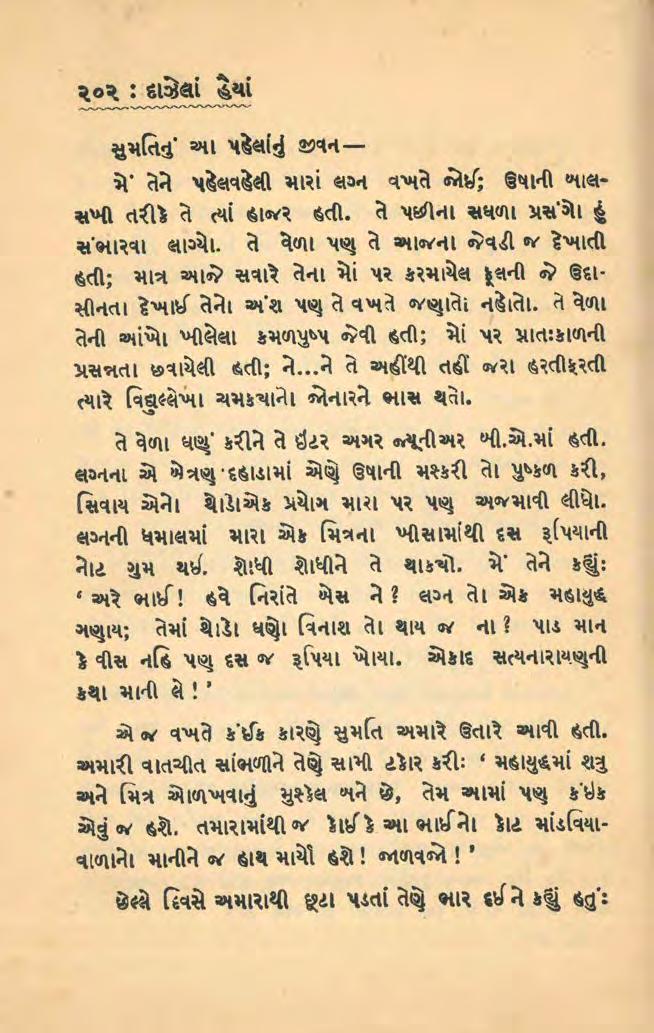 ૨૦૨ : દાઝેલાં હૈયાં
સુમતિનું આ પહેલાંનું જીવન—
મેં તેને પહેલવહેલી મારાં લગ્ન વખતે જોઈ; ઉષાની બાલ-
સખી તરીકે તે ત્યાં હાજર હતી. તે પછીના સઘળા પ્રસંગો હું
સંભારવા લાગ્યો. તે વેળા પણ તે આજના જેવડી જ દેખાતી
હતી; માત્ર આજે સવારે તેના મોં પર કરમાયેલ ફૂલની જે ઉદા-
સીનતા દેખાઈ તેનો અંશ પણ તે વખતે જણાતો નહોતો. તે વેળા
તેની આંખો ખીલેલા કમળપુષ્પ જેવી હતી; મોં પર પ્રાતઃકાળની
પ્રસન્નતા છવાયેલી હતી; ને...ને તે અહીંથી તહીં જરા હરતીફરતી
ત્યારે વિદ્યુલ્લેખા ચમકયાનો જોનારને ભાસ થતો.
તે વેળા ઘણું કરીને તે ઇંટર અગર જ્યૂનીઅર બી.એ.માં હતી.
લગ્નના એ બેત્રણ દહાડામાં એણે ઉષાની મશ્કરી તો પુષ્કળ કરી,
સિવાય એનો થોડોએક પ્રયોગ મારા પર પણ અજમાવી લીધો.
લગ્નની ધમાલમાં મારા એક મિત્રના ખીસામાંથી દસ રૂપિયાની
નોટ ગુમ થઈ. શોધી શોધીને તે થાકયો. મેં તેને કહ્યું:
‘ અરે ભાઈ! હવે નિરાંતે બેસ ને? લગ્ન તો એક મહાયુદ્ધ
ગણાય; તેમાં થોડો ઘણો વિનાશ તો થાય જ ના? પાડ માન
કે વીસ નહિ પણ દસ જ રૂપિયા ખોયા. એકાદ સત્યનારાયણની
કથા માની લે!’
એ જ વખતે કંઈક કારણે સુમતિ અમારે ઉતારે આવી હતી.
અમારી વાતચીત સાંભળીને તેણે સામી ટકોર કરી: ‘ મહાયુદ્ધમાં શત્રુ
અને મિત્ર ઓળખવાનું મુશ્કેલ બને છે, તેમ આમાં પણ કંઈક
એવું જ હશે. તમારામાંથી જ કોઈકે આ ભાઈનો કોટ માંડવિયા-
વાળાનો માનીને જ હાથ માર્યો હશે! જાળવજો!’
છેલ્લે દિવસે અમારાથી છૂટા પડતાં તેણે ભાર દઈને કહ્યું હતું: